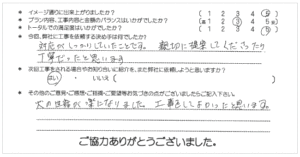 * イメージ通りに出来上がりましたか? ( 1 2 3 4 5 )
* プラン内容、工事内容と金額のバランスはいかがでしたか? ( 1 2 3 4 5 )
* トータルでの満足度はいかがでしたか? ( 1 2 3 4 5 )
* 今回、弊社に工事を依頼する決め手は何でしたか?
対応がしっかりしていたことです。親切に提案してくださったり
丁寧だったと思います。
* 次回工事をされる場合やお知り合いに紹介を、また弊社に依頼しようと思いますか?
( はい ・ いいえ )
* その他のご意見・ご感想・ご指摘・ご要望等お気づきの点がございましたらご記入下さい。
犬の世話が楽になりました。工事をしてよかったと思います。
ご協力ありがとうございました。